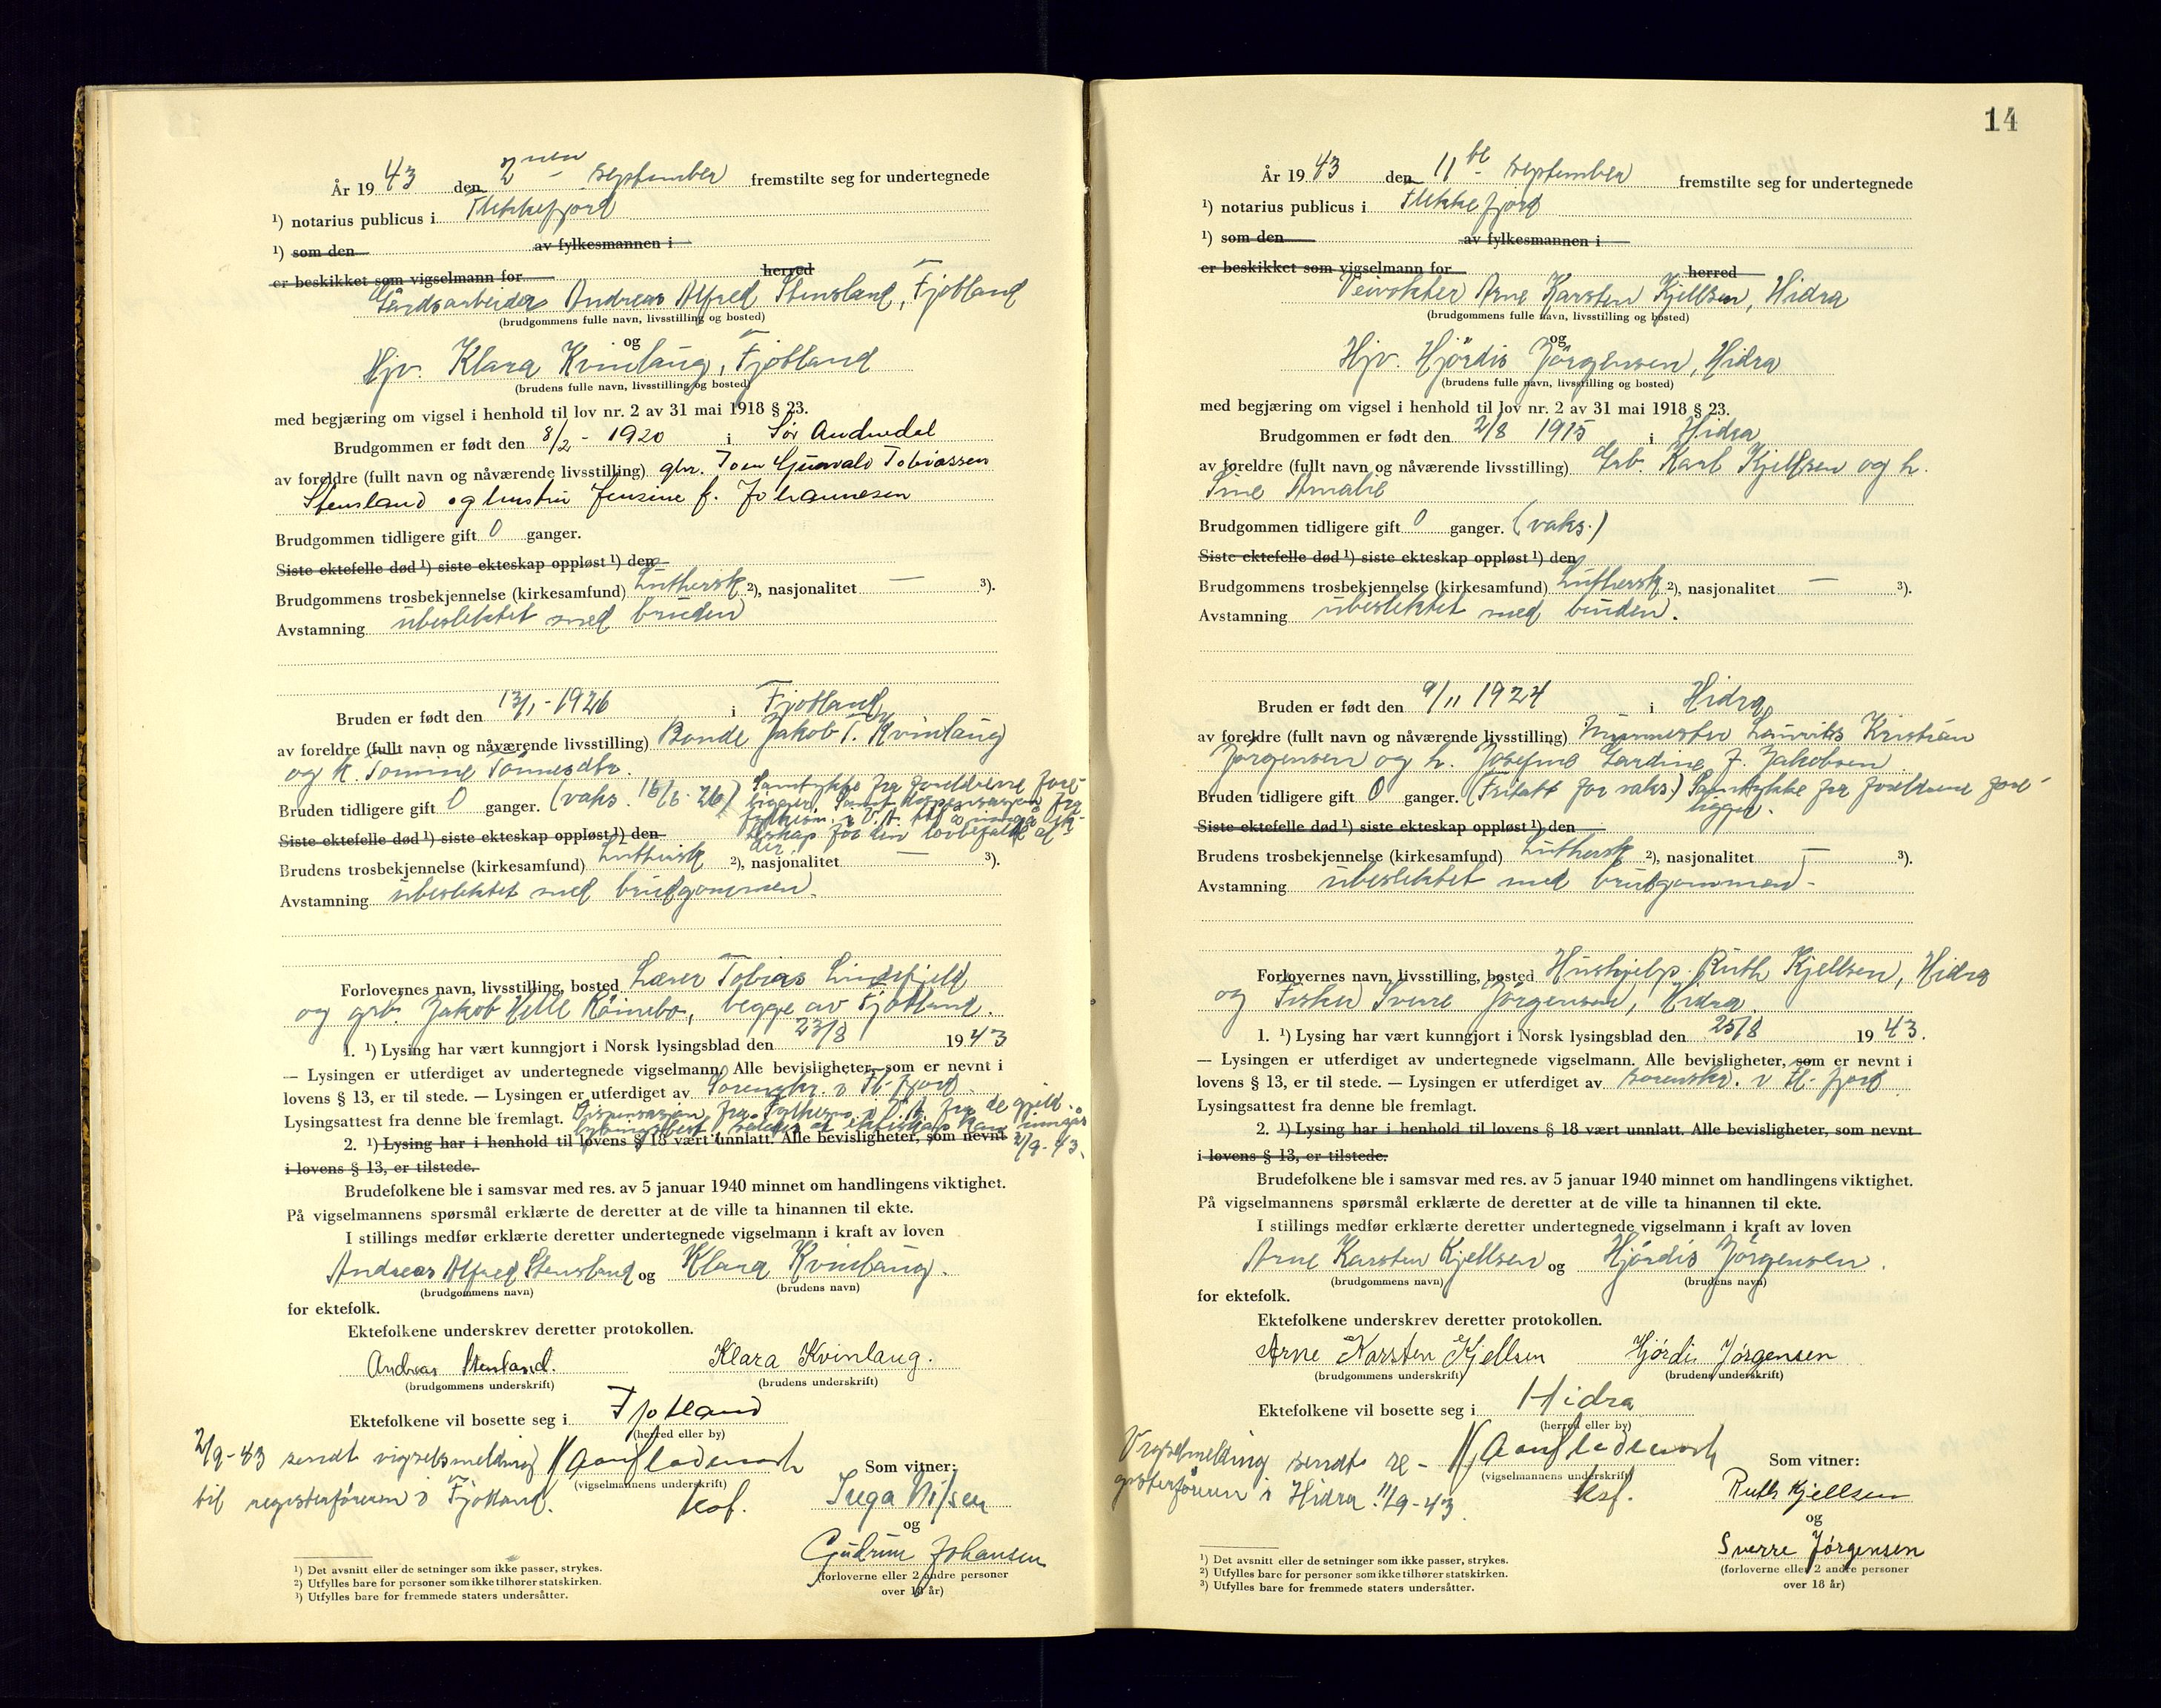 År 19 43 den 2nen september fremstilte seg for undertegnede
¹) notarius publicus i Flekkefjord
¹) som den av fylkesmannen i
er beskikket som vigselmann for herred
Gårdsarbeider Andreas Alfred Stensland, Fjotland
(brudgommens fulle navn, livsstilling og bosted)
og
Hjv. Klara Kvinlaug, Fjotland
(brudens fulle navn, livsstilling og bosted)
med begjæring om vigsel i henhold til lov nr. 2 av 31 mai 1918 § 23.
Brudgommen er født den 8/2 - 1920 i Sör Audnedal
av foreldre (fullt navn og nåværende livsstilling) gbr. Toen Gunvald Tobiassen
Stensland og hustru Jensine f. Johannesen
Brudgommen tidligere gift 0 ganger.
Siste ektefelle død ¹) siste ekteskap oppløst ¹) den
Brudgommens trosbekjennelse (kirkesamfund) Luthersk ²), nasjonalitet — ³).
Avstamning ubeslektet med bruden
Bruden er født den 13/1 - 1926 i Fjotland
av foreldre (fullt navn og nåværende livsstilling) Bonde Jakob T. Kvinlaug
og h. Tomine Tönnesdtr.
Bruden tidligere gift 0 ganger. (vaks. 16/6 - 26) Samtykke fra foreldrene fore-
ligger. Samt dispensasjon fra
fylkesm. i V.A. til å inngå ek-
teskap för den lovbefalte al
der
Siste ektefelle død ¹) siste ekteskap oppløst ¹) den
Brudens trosbekjennelse (kirkesamfund) Luthersk ²), nasjonalitet — ³).
Avstamning ubeslektet med brudgommen.
Forlovernes navn, livsstilling, bosted Lærer Tobias Lindefjeld
og grb. Jakob Helle Röinebö, begge av Fjotland.
1. ¹) Lysing har vært kunngjort i Norsk lysingsblad den 23/8 19 43
— Lysingen er utferdiget av undertegnede vigselmann. Alle bevisligheter, som er nevnt i
lovens § 13, er til stede. — Lysingen er utferdiget av Sorenskr. i Fl.fjord.
Lysingsattest fra denne ble fremlagt. Dispensasjon fra Fylkesm. i V.A. fra de gjeld.
lysningsbest. således at ekteskap kan inngås
2/9-43.
2. ¹) Lysing har i henhold til lovens § 18 vært unnlatt. Alle bevisligheter, som nevnt
i lovens § 13, er tilstede.
Brudefolkene ble i samsvar med res. av 5 januar 1940 minnet om handlingens viktighet.
På vigselmannens spørsmål erklærte de deretter at de ville ta hinannen til ekte.
I stillings medfør erklærte deretter undertegnede vigselmann i kraft av loven
Andreas Alfred Stensland og Klara Kvinlaug.
(brudgommens navn) (brudens navn)
for ektefolk.
Ektefolkene underskrev deretter protokollen.
Andreas Stensland. Klara Kvinlaug.
(brudgommens underskrift) (brudens underskrift)
Ektefolkene vil bosette seg i Fjotland
(herred eller by)
2/9-43 sendt vigselsmelding
til registerföreren i Fjotland.
(vigselmannens underskrift)
kst.
Som vitner:
Inga Nilsen
og
Gudrun Johansen
(forloverne eller 2 andre personer
over 18 år)
¹) Det avsnitt eller de setninger som ikke passer, strykes.
²) Utfylles bare for personer som ikke tilhører statskirken.
³) Utfylles bare for fremmede staters undersåtter.
14
År 19 43 den 11te september fremstilte seg for undertegnede
¹) notarius publicus i Flekkefjord
¹) som den av fylkesmannen i
er beskikket som vigselmann for herred
Veivokter Arne Karsten Kjellsen, Hidra
(brudgommens fulle navn, livsstilling og bosted)
og
Hjv. Hjördis Jörgensen, Hidra
(brudens fulle navn, livsstilling og bosted)
med begjæring om vigsel i henhold til lov nr. 2 av 31 mai 1918 § 23.
Brudgommen er født den 2/8 1915 i Hidra
av foreldre (fullt navn og nåværende livsstilling) Grb. Karl Kjellsen og h.
Sine Amalie
Brudgommen tidligere gift 0 ganger. (vaks.)
Siste ektefelle død ¹) siste ekteskap oppløst ¹) den
Brudgommens trosbekjennelse (kirkesamfund) Luthersk ²), nasjonalitet — ³).
Avstamning ubeslektet med bruden.
Bruden er født den 9/11 1924 i Hidra,
av foreldre (fullt navn og nåværende livsstilling) Murmester Lauritz Kristian
Jörgensen og h. Josefine Gardine f. Jakobsen
Bruden tidligere gift 0 ganger. (Fritatt for vaks.) Samtykke fra foreldrene fore-
ligger.
Siste ektefelle død ¹) siste ekteskap oppløst ¹) den
Brudens trosbekjennelse (kirkesamfund) Luthersk ²), nasjonalitet — ³).
Avstamning ubeslektet med brudgommen-
Forlovernes navn, livsstilling, bosted Hushjelp. Ruth Kjellsen, Hidra
og Fisker Sverre Jörgensen, Hidra
1. ¹) Lysing har vært kunngjort i Norsk lysingsblad den 25/8 19 43.
— Lysingen er utferdiget av undertegnede vigselmann. Alle bevisligheter, som er nevnt i
lovens § 13, er til stede. — Lysingen er utferdiget av sorenskr. i Fl.fjord
Lysingsattest fra denne ble fremlagt.
2. ¹) Lysing har i henhold til lovens § 18 vært unnlatt. Alle bevisligheter, som nevnt
i lovens § 13, er tilstede.
Brudefolkene ble i samsvar med res. av 5 januar 1940 minnet om handlingens viktighet.
På vigselmannens spørsmål erklærte de deretter at de ville ta hinannen til ekte.
I stillings medfør erklærte deretter undertegnede vigselmann i kraft av loven
Arne Karsten Kjellsen og Hjördis Jörgensen.
(brudgommens navn) (brudens navn)
for ektefolk.
Ektefolkene underskrev deretter protokollen.
Arne Karsten Kjellsen Hjördis Jørgensen
(brudgommens underskrift) (brudens underskrift)
Ektefolkene vil bosette seg i Hidra
(herred eller by)
Vigselmelding sendt re-
gisterföreren i Hidra 11/9-43.
(vigselmannens underskrift)
kst.
Som vitner:
Ruth Kjellsen
og
Sverre Jørgensen
(forloverne eller 2 andre personer
over 18 år)
¹) Det avsnitt eller de setninger som ikke passer, strykes.
²) Utfylles bare for personer som ikke tilhører statskirken.
³) Utfylles bare for fremmede staters undersåtter.